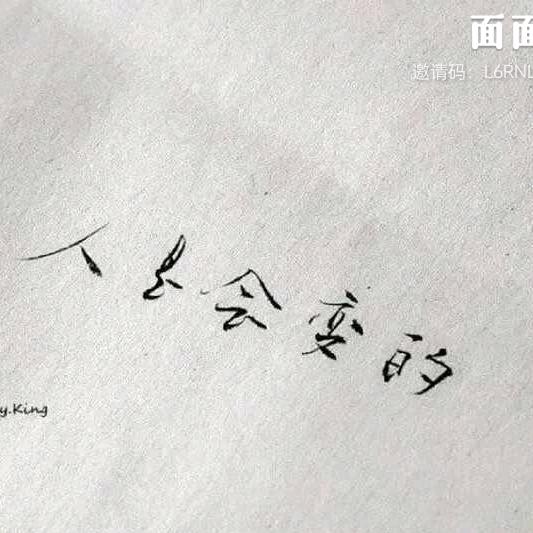 面面
邀请码：L6RNL
人是会变的
y.King